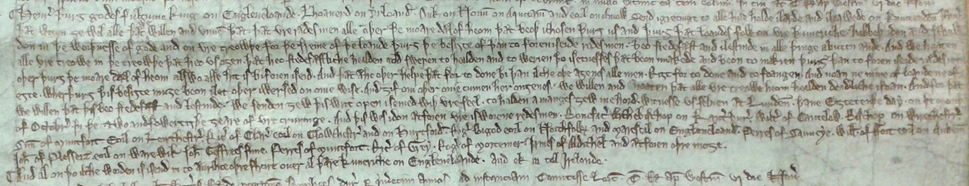 Henr' þurȝ godes fultume king on Engleneloande Lhoauerd on Yrloand' Duk' on Norm' on Aquitain' and eorl on Aniow Send igretinge to alle hise holde ilærde and ileawede on Huntendon' schir'
þæt witen ȝe wel alle þæt we willen and vnnen þæt þæt vre rædesmen alle oþer þe moare dæl of heom þæt beoþ ichosen þurȝ us and þurȝ þæt loandes folk on vre kuneriche habbeþ idon and schullen
don in þe worþnesse of gode and on vre treowþe for þe freme of þe loande þurȝ þe besiȝte of þan to foreniseide redesmen beo stedefæst and ilestinde in alle þinge abuten ænde And we hoaten
alle vre treowe in þe treowþe þæt heo vs oȝen þæt heo stedefæstliche healden and swerien to healden and to werien þo isetnesses þæt beon imakede and beon to makien þurȝ þan to foren iseide rædesmen
oþer þurȝ þe moare dæl of heom alswo alse hit is biforen iseid And þæt æhc oþer helpe þæt for to done bi þan ilche oþe aȝenes alle men Riȝt for to done and to foangen And noan ne nime of loande ne of
eȝte wherþurȝ þis besiȝte muȝe beon ilet oþer iwersed on onie wise And ȝif oni oþer onie cumen her onȝenes we willen and hoaten þæt alle vre treowe heom healden deadliche ifoan And for þæt
we willen þæt þis beo stedefæst and lestinde we senden ȝew þis writ open iseined wiþ vre seel to halden amanges ȝew ine hord Witnesse vs seluen æt Lunden' þane Eȝtetenþe day on þe monþe
of Octobr' In þe two and fowertiȝþe ȝeare of vre cruninge And þis wes idon ætforen vre isworene redesmen Boneface Archebischop on Kant'bur' Walter of Cantelow Bischop on Wirechestr'
Sim' of Muntfort Eorl on Leirchestr' Ric' of Clare eorl on Glowchestr' and on Hurtford Rog' Bigod eorl on Northfolk' and marescal on Engleneloand' Perres of Sauueye Will' of fort eorl on Aubem'
Ioh' of Plesseiz eorl on Warewik Ioh' Geffrees sune Perres of Muntfort Ric' of Grey Rog' of Mortemer Iames of Aldithel and ætforen oþre inoȝe
And al on þo ilche worden is isend in to æurihce oþre shcire ouer al þære kuneriche on Engleneloande And ek in tel Irelonde